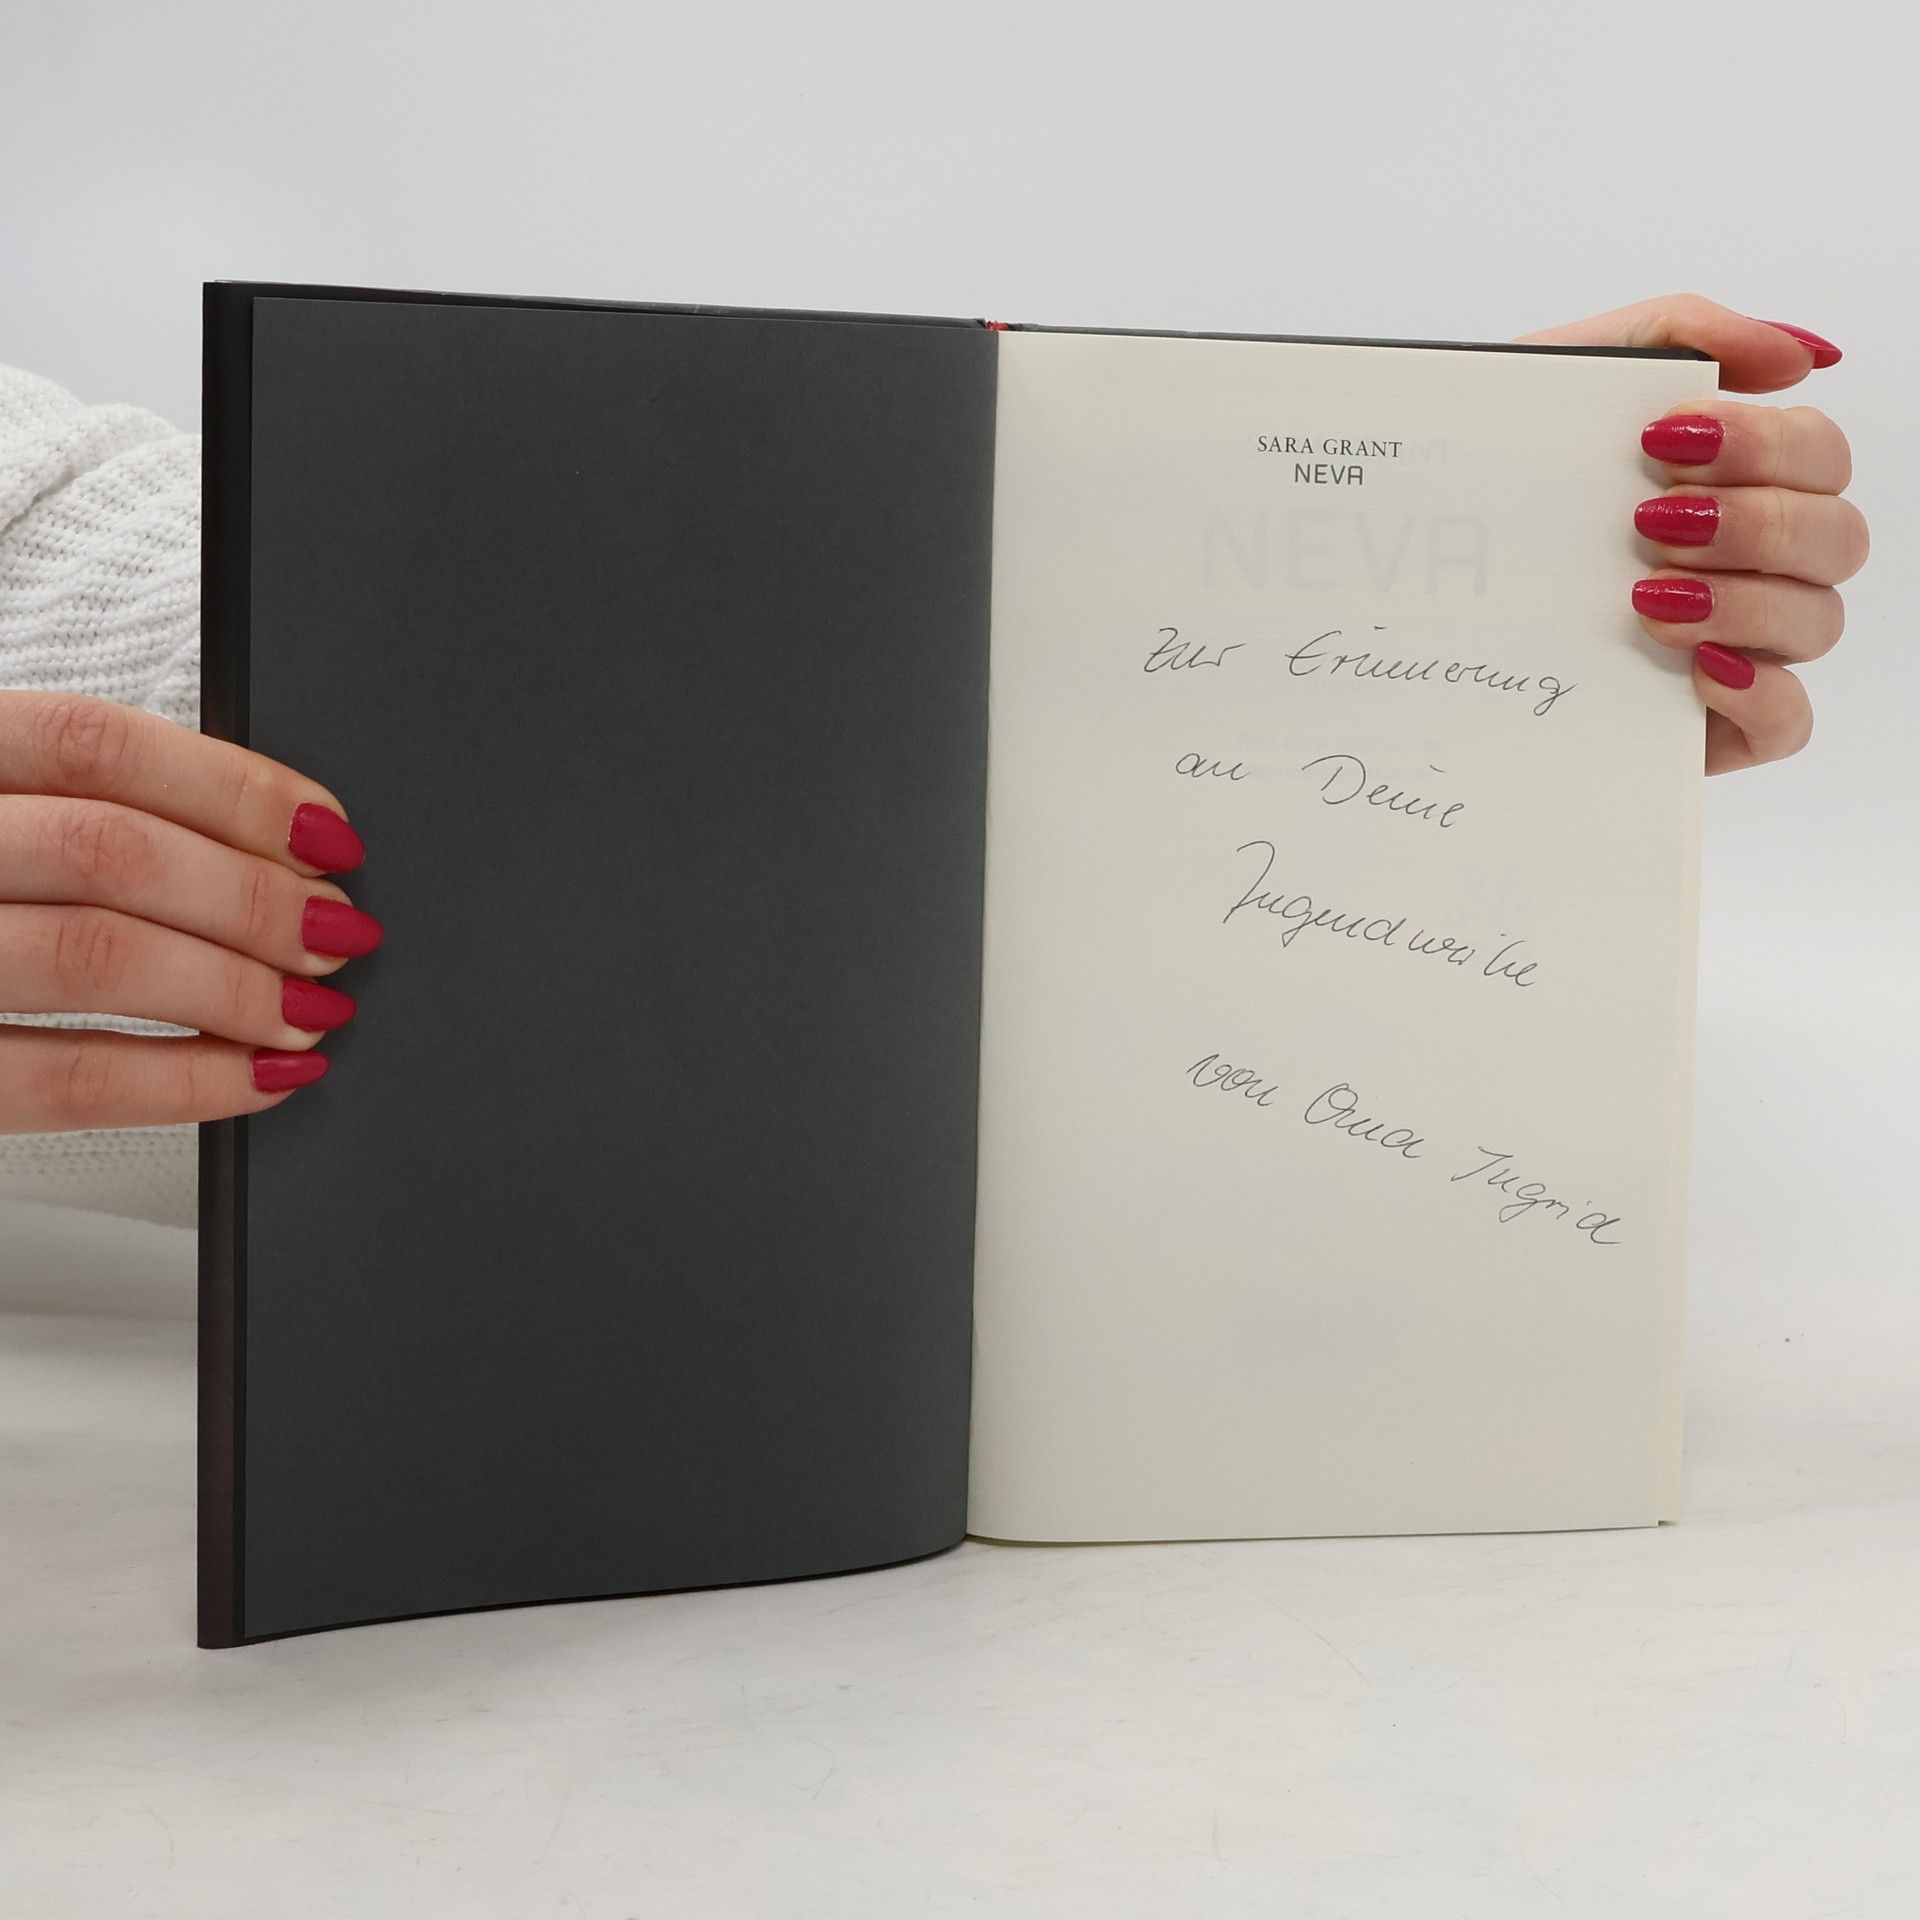 SARA GRANT
NEVA
NEVA
Zur Erinnerung
an Deine
Jugendweihe
von Oma Ingrid